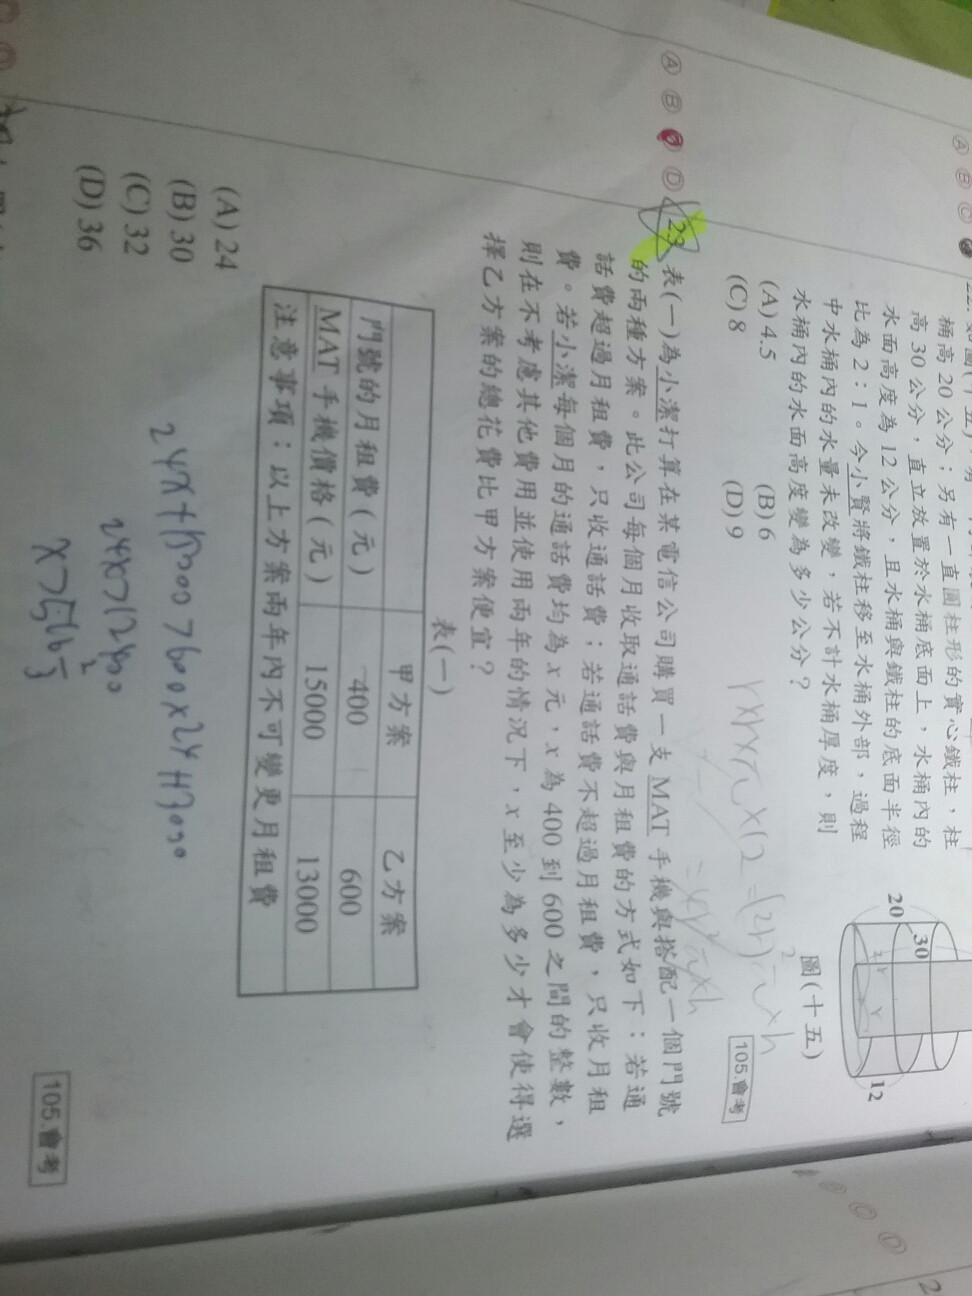 桶高 20 公分；另有一直圓柱形的實心鐵柱，柱
高 30 公分，直立放置於水桶底面上，水桶內的
水面高度為 12 公分，且水桶與鐵柱的底面半徑
比為 2：1。今小賢將鐵柱移至水桶外部，過程
中水桶內的水量未改變，若不計水桶厚度，則
水桶內的水面高度變為多少公分？
(A) 4.5 (B) 6
(C) 8 (D) 9
20
30
12
圖(十五)
105.會考
Ⓐ Ⓑ Ⓓ
23.
表(一)為小潔打算在某電信公司購買一支 MAT 手機與搭配一個門號
的兩種方案。此公司每個月收取通話費與月租費的方式如下：若通
話費超過月租費，只收通話費；若通話費不超過月租費，只收月租
費。若小潔每個月的通話費均為 x 元，x 為 400 到 600 之間的整數，
則在不考慮其他費用並使用兩年的情況下，x 至少為多少才會使得選
擇乙方案的總花費比甲方案便宜？
表(一)
甲方案 乙方案
門號的月租費(元) 400 600
MAT 手機價格(元) 15000 13000
注意事項：以上方案兩年內不可變更月租費
(A) 24
(B) 30
(C) 32
(D) 36
24x+15000>600x24+13000
24x>12400
105.會考